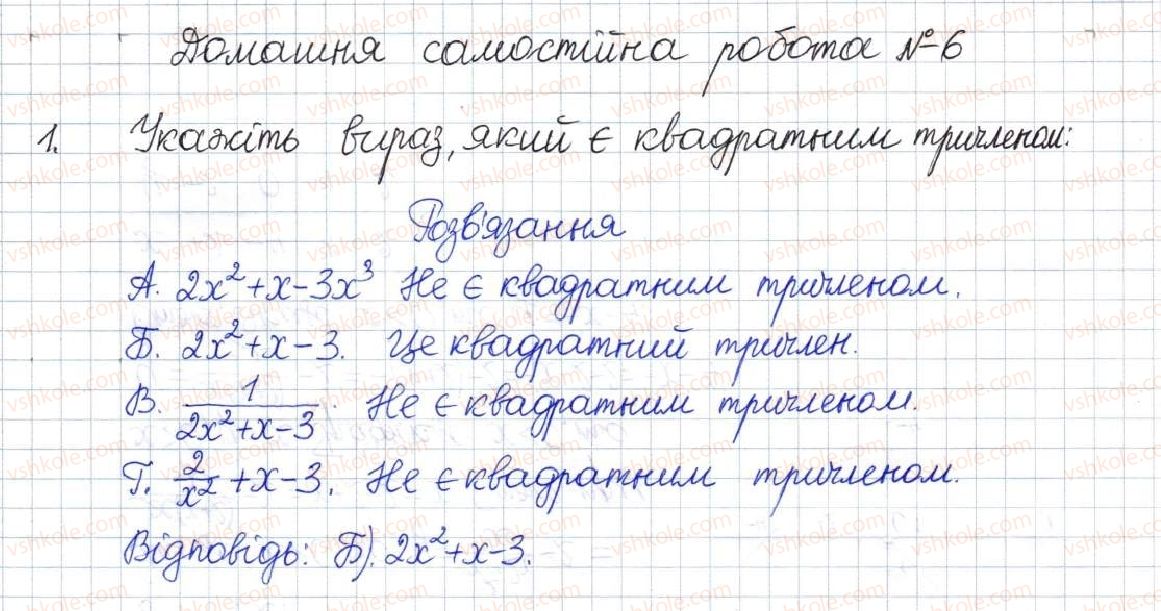 Домашня самостійна робота №6
1. Укажіть вираз, який є квадратним тричленом:
Розв'язання
А. 2x²+x-3x³ Не є квадратним тричленом.
Б. 2x²+x-3. Це квадратний тричлен.
В. 1/(2x²+x-3). Не є квадратним тричленом.
Г. 2/x²+x-3. Не є квадратним тричленом.
Відповідь: Б). 2x²+x-3.